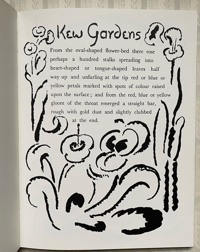 Kew Gardens
From the oval-shaped flower-bed there rose
perhaps a hundred stalks spreading into
heart-shaped or tongue-shaped leaves half
way up and unfurling at the tip red or blue or
yellow petals marked with spots of colour raised
upon the surface; and from the red, blue or yellow
gloom of the throat emerged a straight bar,
rough with gold dust and slightly clubbed
at the end.